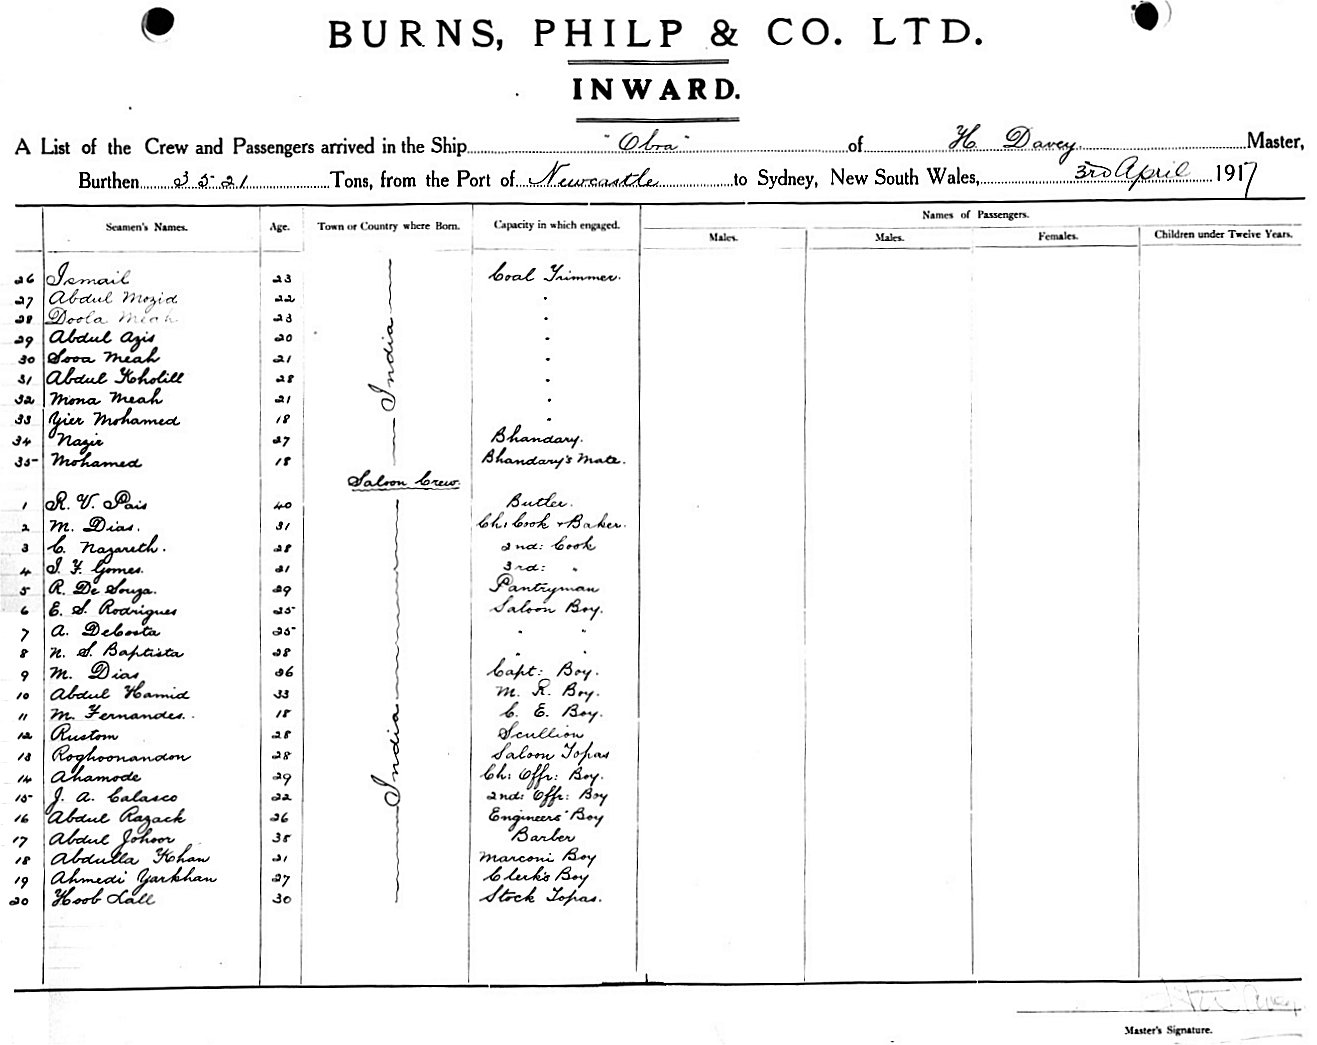 BURNS, PHILP & CO. LTD.
INWARD.
A List of the Crew and Passengers arrived in the Ship "Obra" of H. Davey Master,
Burthen 3521 Tons, from the Port of Newcastle to Sydney, New South Wales, 3rd April 1917
Names of Passengers.
Seamen's Names. Age. Town or Country where Born. Capacity in which engaged. Males. Males. Females. Children under Twelve Years.
26 Ismail 23 India Coal Trimmer.
27 Abdul Mozid 22 "
28 Doola Meah 23 "
29 Abdul Azis 20 "
30 Sova Meah 21 "
31 Abdul Kholill 28 "
32 Mona Meah 21 "
33 Yier Mohamed 18 "
34 Nazir 27 Bhandary.
35 Mohamed 18 Bhandary's Mate.
Saloon Crew.
1 R. V. Pais 40 India Butler.
2 M. Dias. 31 Ch: Cook & Baker.
3 C. Nazareth. 28 2nd: Cook
4 I. F. Gomes. 21 3rd: "
5 R. De Souza. 29 Pantryman
6 E. S. Rodrigues 25 Saloon Boy.
7 A. DeCosta 25 " "
8 N. S. Baptista 28 " "
9 M. Dias 26 Capt: Boy.
10 Abdul Hamid 33 M. R. Boy.
11 M. Fernandes. 18 C. E. Boy.
12 Rustom 28 Scullion
13 Roghoonandon 28 Saloon Topas
14 Ahamode 29 Ch: Offr: Boy.
15 J. A. Calasco 22 2nd: Offr: Boy
16 Abdul Razack 26 Engineers' Boy
17 Abdul Johoor 35 Barber
18 Abdulla Khan 21 Marconi Boy
19 Ahmedi Yarkhan 27 Clerk's Boy
20 Hoob Lall 30 Stock Topas.
Master's Signature.